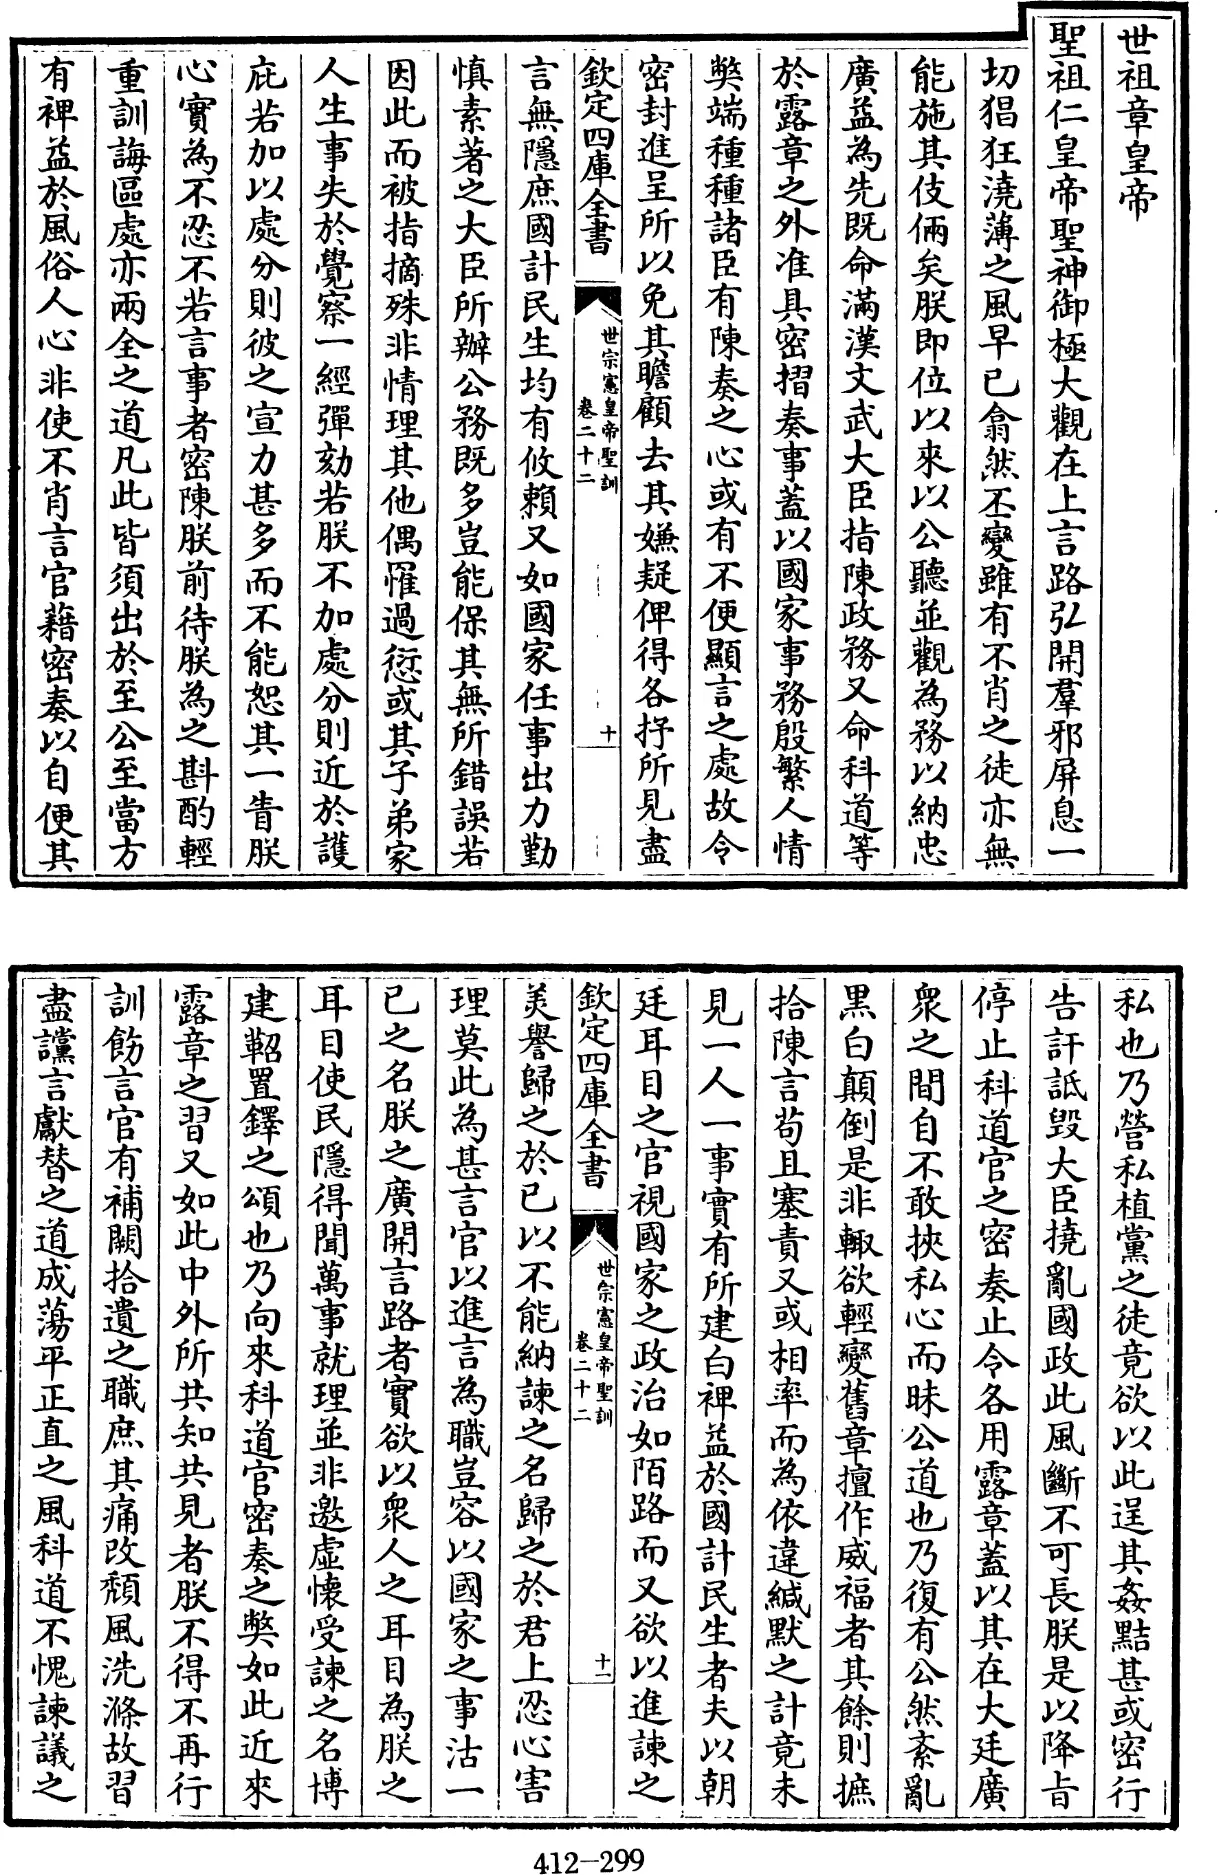 世祖章皇帝
聖祖仁皇帝聖神御極大觀在上言路弘開羣邪屏息一
切猖狂澆薄之風早已翕然丕變雖有不肖之徒亦無
能施其伎倆矣朕即位以來以公聽並觀為務以納忠
廣益為先既命滿漢文武大臣指陳政務又命科道等
於露章之外准具密摺奏事蓋以國家事務殷繁人情
獘端種種諸臣有陳奏之心或有不便顯言之處故令
密封進呈所以免其瞻顧去其嫌疑俾得各抒所見盡
欽定四庫全書
世宗憲皇帝聖訓
卷二十二
十
言無隱庶國計民生均有攸賴又如國家任事出力勤
慎素著之大臣所辦公務既多豈能保其無所錯誤若
因此而被指摘殊非情理其他偶罹過愆或其子弟家
人生事失於覺察一經彈劾若朕不加處分則近於護
庇若加以處分則彼之宣力甚多而不能恕其一眚朕
心實為不忍不若言事者密陳朕前待朕為之斟酌輕
重訓誨區處亦兩全之道凡此皆須出於至公至當方
有裨益於風俗人心非使不肖言官藉密奏以自便其
私也乃營私植黨之徒竟欲以此逞其姦黠甚或密行
告訐詆毀大臣撓亂國政此風斷不可長朕是以降旨
停止科道官之密奏止令各用露章蓋以其在大廷廣
衆之間自不敢挾私心而昧公道也乃復有公然紊亂
黑白顛倒是非輙欲輕變舊章擅作威福者其餘則摭
拾陳言苟且塞責又或相率而為依違緘默之計竟未
見一人一事實有所建白裨益於國計民生者夫以朝
廷耳目之官視國家之政治如陌路而又欲以進諫之
欽定四庫全書
世宗憲皇帝聖訓
卷二十二
十一
美譽歸之於已以不能納諫之名歸之於君上忍心害
理莫此為甚言官以進言為職豈容以國家之事沽一
已之名朕之廣開言路者實欲以衆人之耳目為朕之
耳目使民隱得聞萬事就理並非邀虛懷受諫之名博
建鞀置鐸之頌也乃向來科道官密奏之獘如此近來
露章之習又如此中外所共知共見者朕不得不再行
訓飭言官有補闕拾遺之職庶其痛改頹風洗滌故習
盡讜言獻替之道成蕩平正直之風科道不愧諫議之
412-299